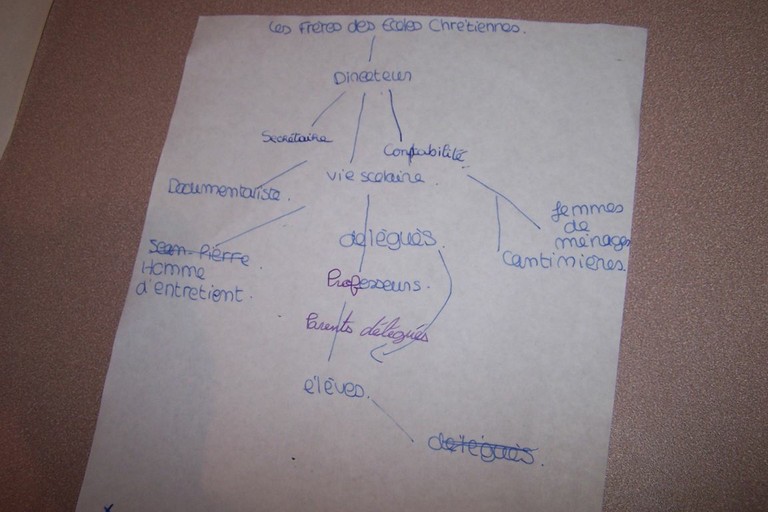 Les Frères des Ecoles Chrétiennes.
Directeur
Secrétaire
Comptabilité
vie scolaire.
Documentariste.
femmes
de
ménages
Cantinières.
délégués.
Jean-Pierre
Homme
d'entretient.
Professeurs.
Parents délégués
élèves.
délégués.